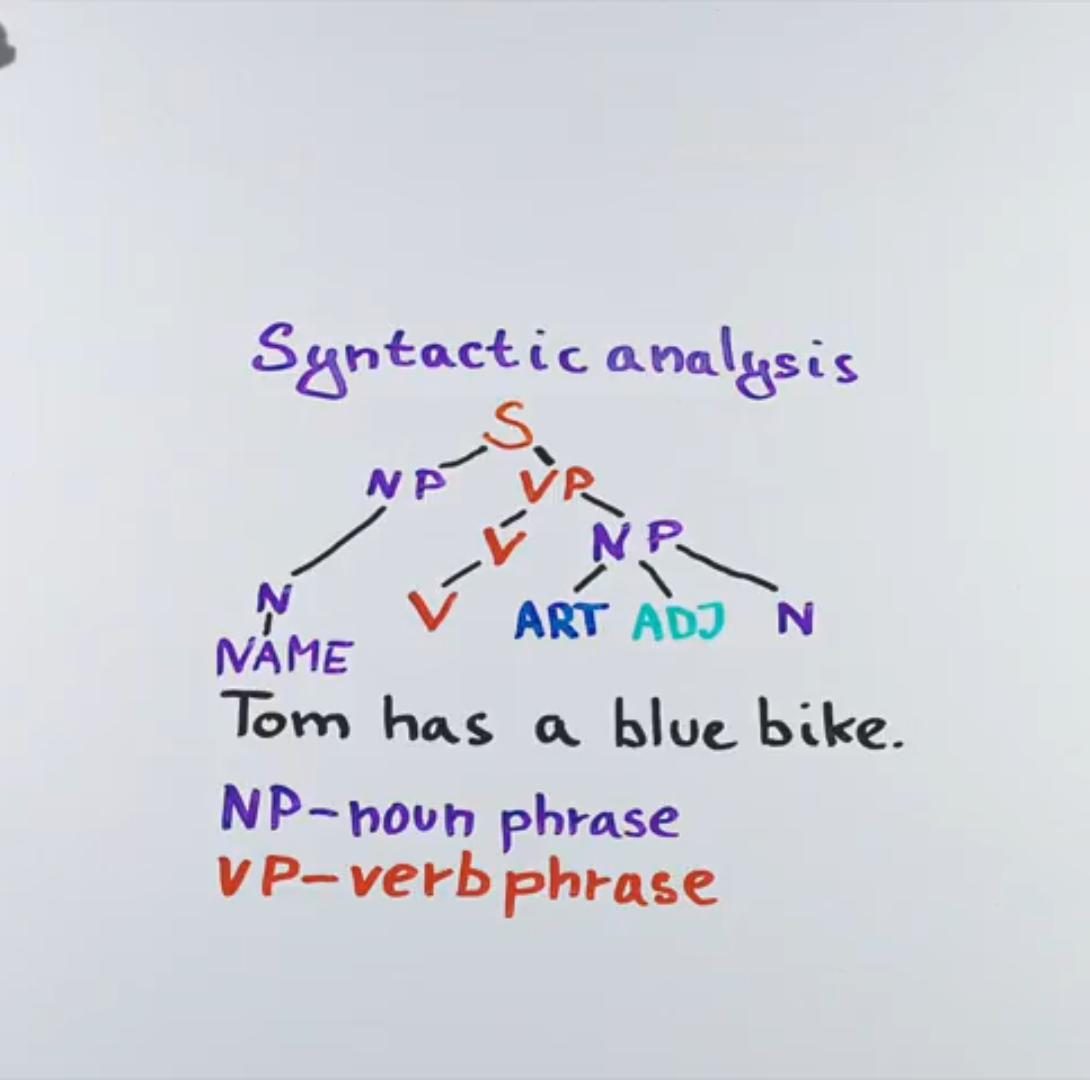 Syntactic analysis
S
NP VP
V NP
N V ART ADJ N
NAME
Tom has a blue bike.
NP-noun phrase
VP-verb phrase